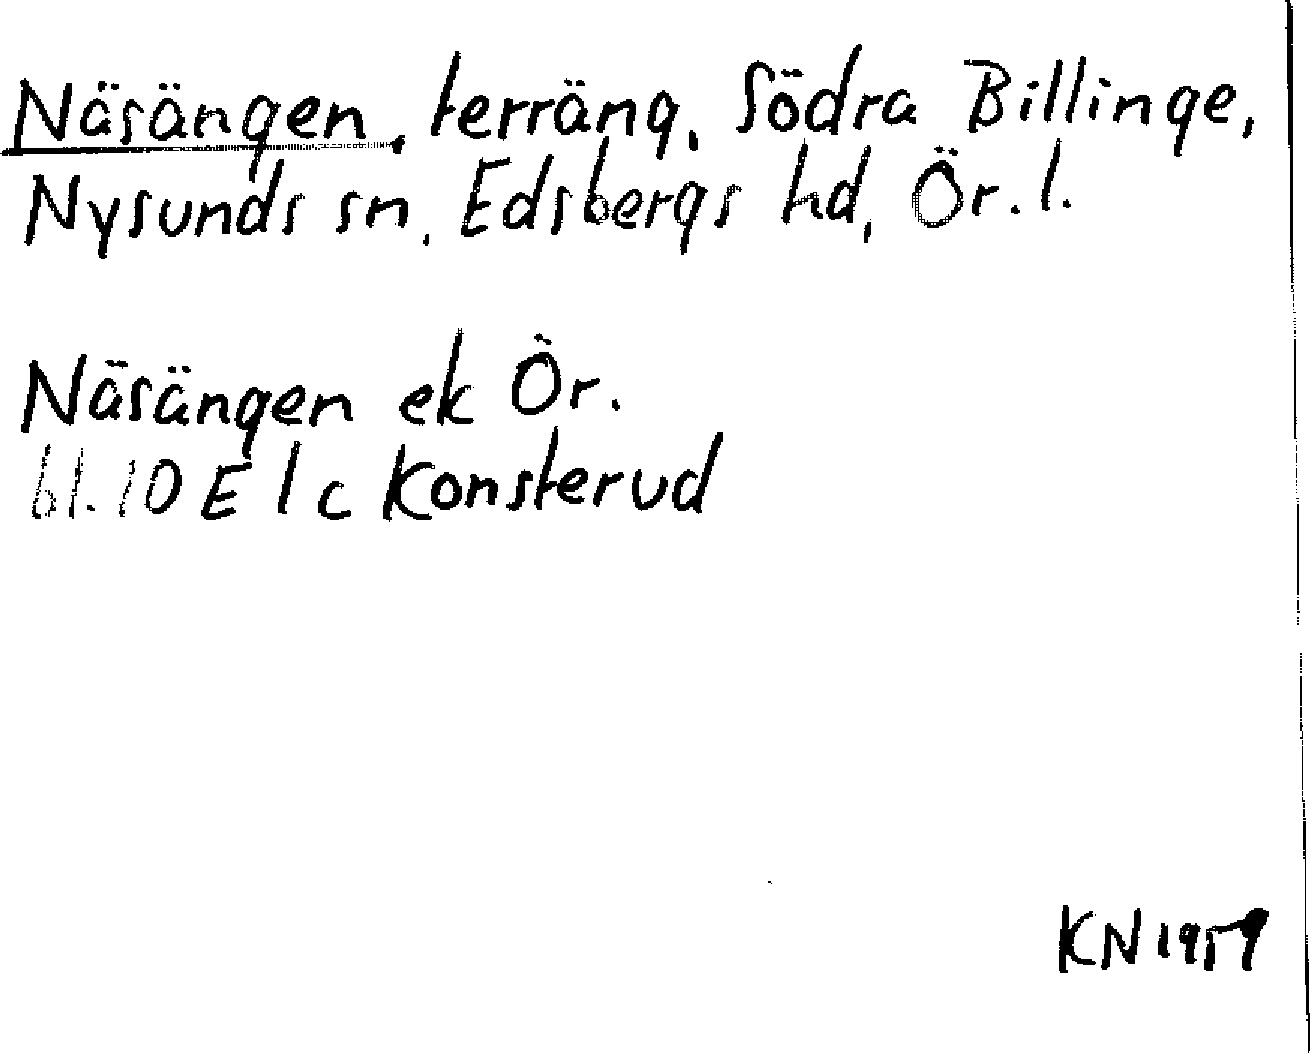 Näsängen, terräng, Södra Billinge,
Nysunds sn, Edsbergs hd, Ör. l.
Näsängen ek Ör.
bl. 10 E 1 c Konsterud
KN 1959